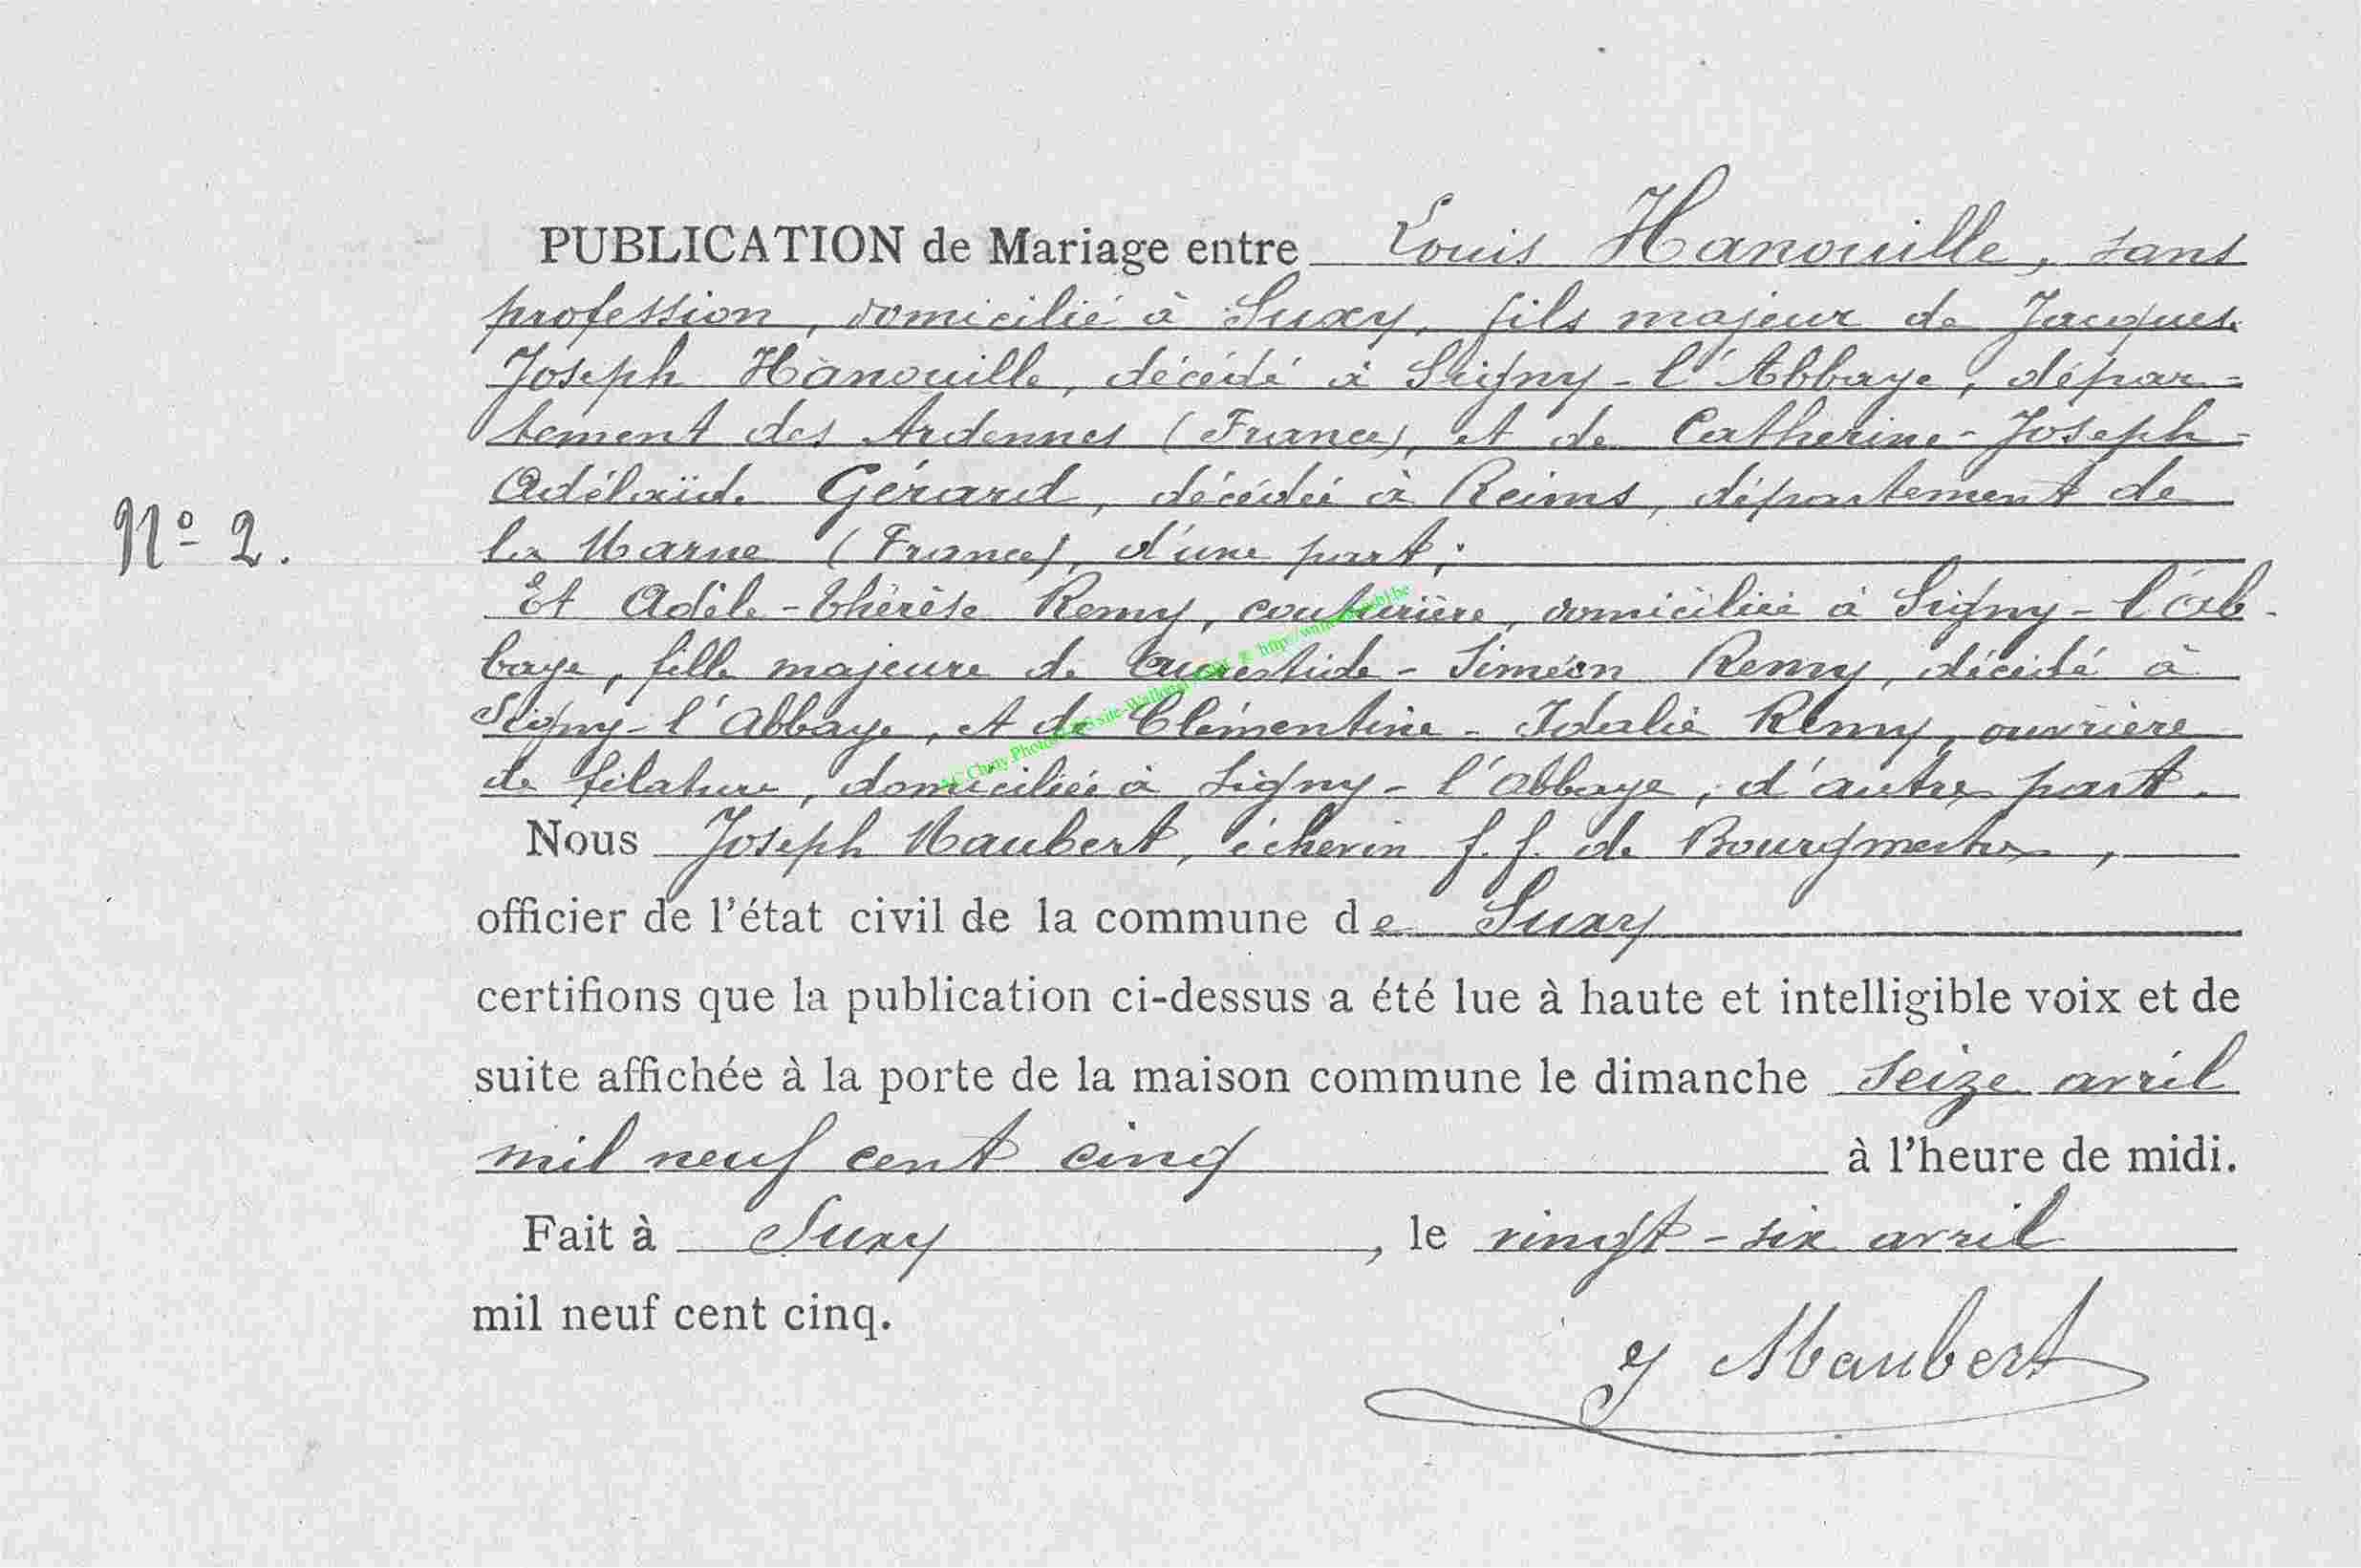 PUBLICATION de Mariage entre Louis Hanouille, sans
profession, domicilié à Suxy, fils majeur de Jacques
Joseph Hanouille, décédé à Signy-l'Abbaye, dépar-
tement des Ardennes (France), et de Catherine-Joseph-
Adélaïde Gérard, décédée à Reims, département de
Nº 2.
la Marne (France), d'une part;
Et Adèle-Thérèse Remy, couturière, domiciliée à Signy-l'Ab-
baye, fille majeure de -Siméon Remy, décédé à
Signy-l'Abbaye, et de Clémentine-Idalie Remy, ouvrière
de filature, domiciliée à Signy-l'Abbaye, d'autre part.
Nous Joseph Maubert, échevin f.f. de Bourgmestre,
officier de l'état civil de la commune de Suxy
certifions que la publication ci-dessus a été lue à haute et intelligible voix et de
suite affichée à la porte de la maison commune le dimanche seize avril
mil neuf cent cinq à l'heure de midi.
Fait à Suxy, le vingt-six avril
mil neuf cent cinq.
J Maubert